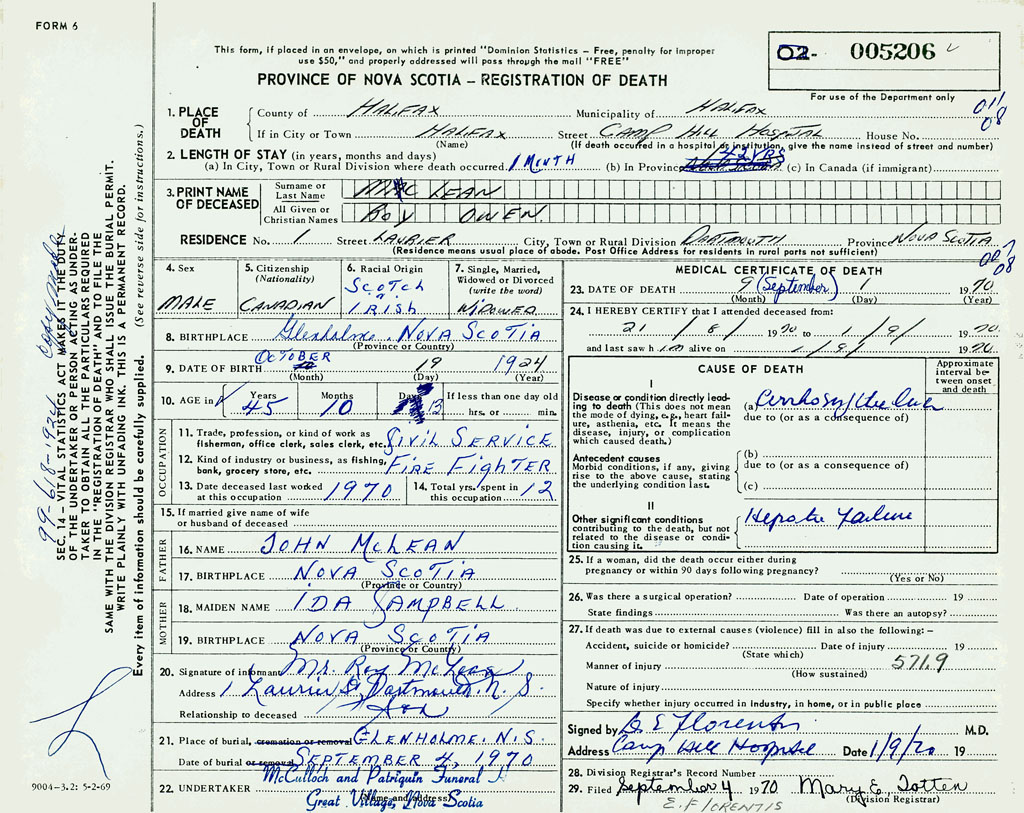 FORM 6
This form, if placed in an envelope, on which is printed "Dominion Statistics – Free, penalty for improper
use $50," and properly addressed will pass through the mail "FREE"
PROVINCE OF NOVA SCOTIA – REGISTRATION OF DEATH
02- 005206
For use of the Department only
011
08
1. PLACE OF DEATH
County of HALIFAX Municipality of HALIFAX
If in City or Town HALIFAX Street CAMP HILL HOSPITAL House No.
(Name) (If death occurred in a hospital or institution, give the name instead of street and number)
2. LENGTH OF STAY (in years, months and days)
(a) In City, Town or Rural Division where death occurred 1 MONTH (b) In Province 42 YRS (c) In Canada (if immigrant)
3. PRINT NAME OF DECEASED
Surname or Last Name MAC LEAN
All Given or Christian Names ROY OWEN
RESIDENCE No. 1 Street LAURIER City, Town or Rural Division DARTMOUTH Province NOVA SCOTIA
(Residence means usual place of abode. Post Office Address for residents in rural parts not sufficient)
08
4. Sex MALE
5. Citizenship (Nationality) CANADIAN
6. Racial Origin SCOTCH IRISH
7. Single, Married, Widowed or Divorced (write the word) WIDOWER
8. BIRTHPLACE Glenholme, NOVA SCOTIA
(Province or Country)
9. DATE OF BIRTH OCTOBER 19 1924
(Month) (Day) (Year)
10. AGE in Years 45 Months 10 Days 13 If less than one day old hrs. or min.
OCCUPATION
11. Trade, profession, or kind of work as fisherman, office clerk, sales clerk, etc. CIVIL SERVICE
12. Kind of industry or business, as fishing, bank, grocery store, etc. FIRE FIGHTER
13. Date deceased last worked at this occupation 1970
14. Total yrs. spent in this occupation 12
15. If married give name of wife or husband of deceased
FATHER
16. NAME JOHN McLEAN
17. BIRTHPLACE NOVA SCOTIA
(Province or Country)
MOTHER
18. MAIDEN NAME IDA CAMPBELL
19. BIRTHPLACE NOVA SCOTIA
(Province or Country)
20. Signature of informant Mr. Roy McLean
Address 1 Laurier St, Dartmouth, N.S.
Relationship to deceased Son
21. Place of burial, cremation or removal GLENHOLME, N.S.
Date of burial or removal SEPTEMBER 4, 1970
22. UNDERTAKER McCulloch and Patriquin Funeral H
Great Village, Nova Scotia
(Name and address)
MEDICAL CERTIFICATE OF DEATH
23. DATE OF DEATH 9 (September) 1 1970
(Month) (Day) (Year)
24. I HEREBY CERTIFY that I attended deceased from:
21 / 8 / 1970 to 1 / 9 / 1970
and last saw him alive on 1 / 9 / 1970
CAUSE OF DEATH
Approximate interval between onset and death
I
Disease or condition directly leading to death (This does not mean the mode of dying, e.g., heart failure, asthenia, etc. It means the disease, injury, or complication which caused death.)
(a) Cirrhosis of the liver
due to (or as a consequence of)
Antecedent causes
Morbid conditions, if any, giving rise to the above cause, stating the underlying condition last.
(b)
due to (or as a consequence of)
(c)
II
Other significant conditions contributing to the death, but not related to the disease or condition causing it.
Hepatic Failure
25. If a woman, did the death occur either during pregnancy or within 90 days following pregnancy?
(Yes or No)
26. Was there a surgical operation? Date of operation 19
State findings Was there an autopsy?
27. If death was due to external causes (violence) fill in also the following: –
Accident, suicide or homicide? Date of injury 19
(State which)
Manner of injury 571.9
(How sustained)
Nature of injury
Specify whether injury occurred in industry, in home, or in public place
Signed by D. E. Florentis M.D.
Address Camp Hill Hospital Date 1/9/70 19
28. Division Registrar's Record Number
29. Filed September 4 1970 Mary E. Totten
(Division Registrar)
E. FLORENTIS
99-618-1924
SEC. 14 – VITAL STATISTICS ACT MAKES IT THE DUTY
OF THE UNDERTAKER OR PERSON ACTING AS UNDER-
TAKER TO OBTAIN ALL THE PARTICULARS REQUIRED
IN THE "REGISTRATION OF DEATH" AND FILE THE
SAME WITH THE DIVISION REGISTRAR WHO SHALL ISSUE THE BURIAL PERMIT.
WRITE PLAINLY WITH UNFADING INK. THIS IS A PERMANENT RECORD.
Every item of information should be carefully supplied. (See reverse side for instructions.)
9004-3.2: 5-2-69